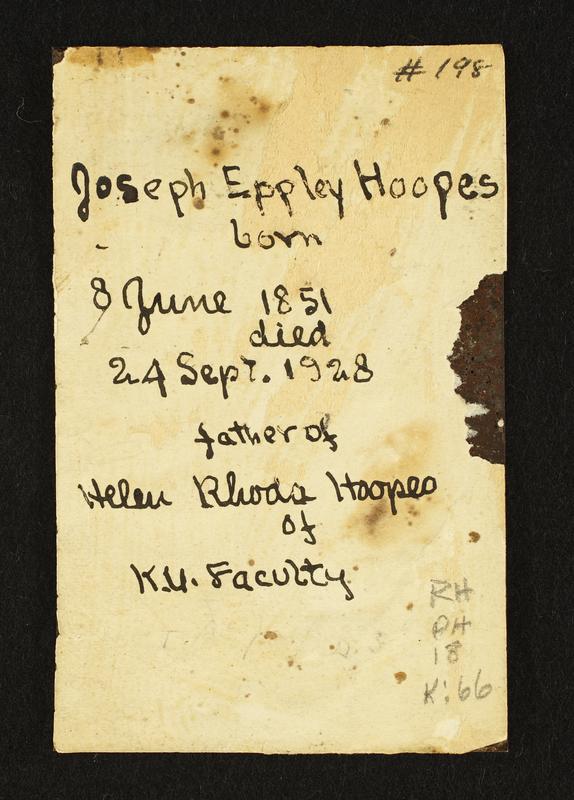 # 198
Joseph Eppley Hoopes
born
8 June 1851
died
24 Sept. 1928
father of
Helen Rhoda Hoopes
of
K.U. Faculty
RH
PH
18
K:66